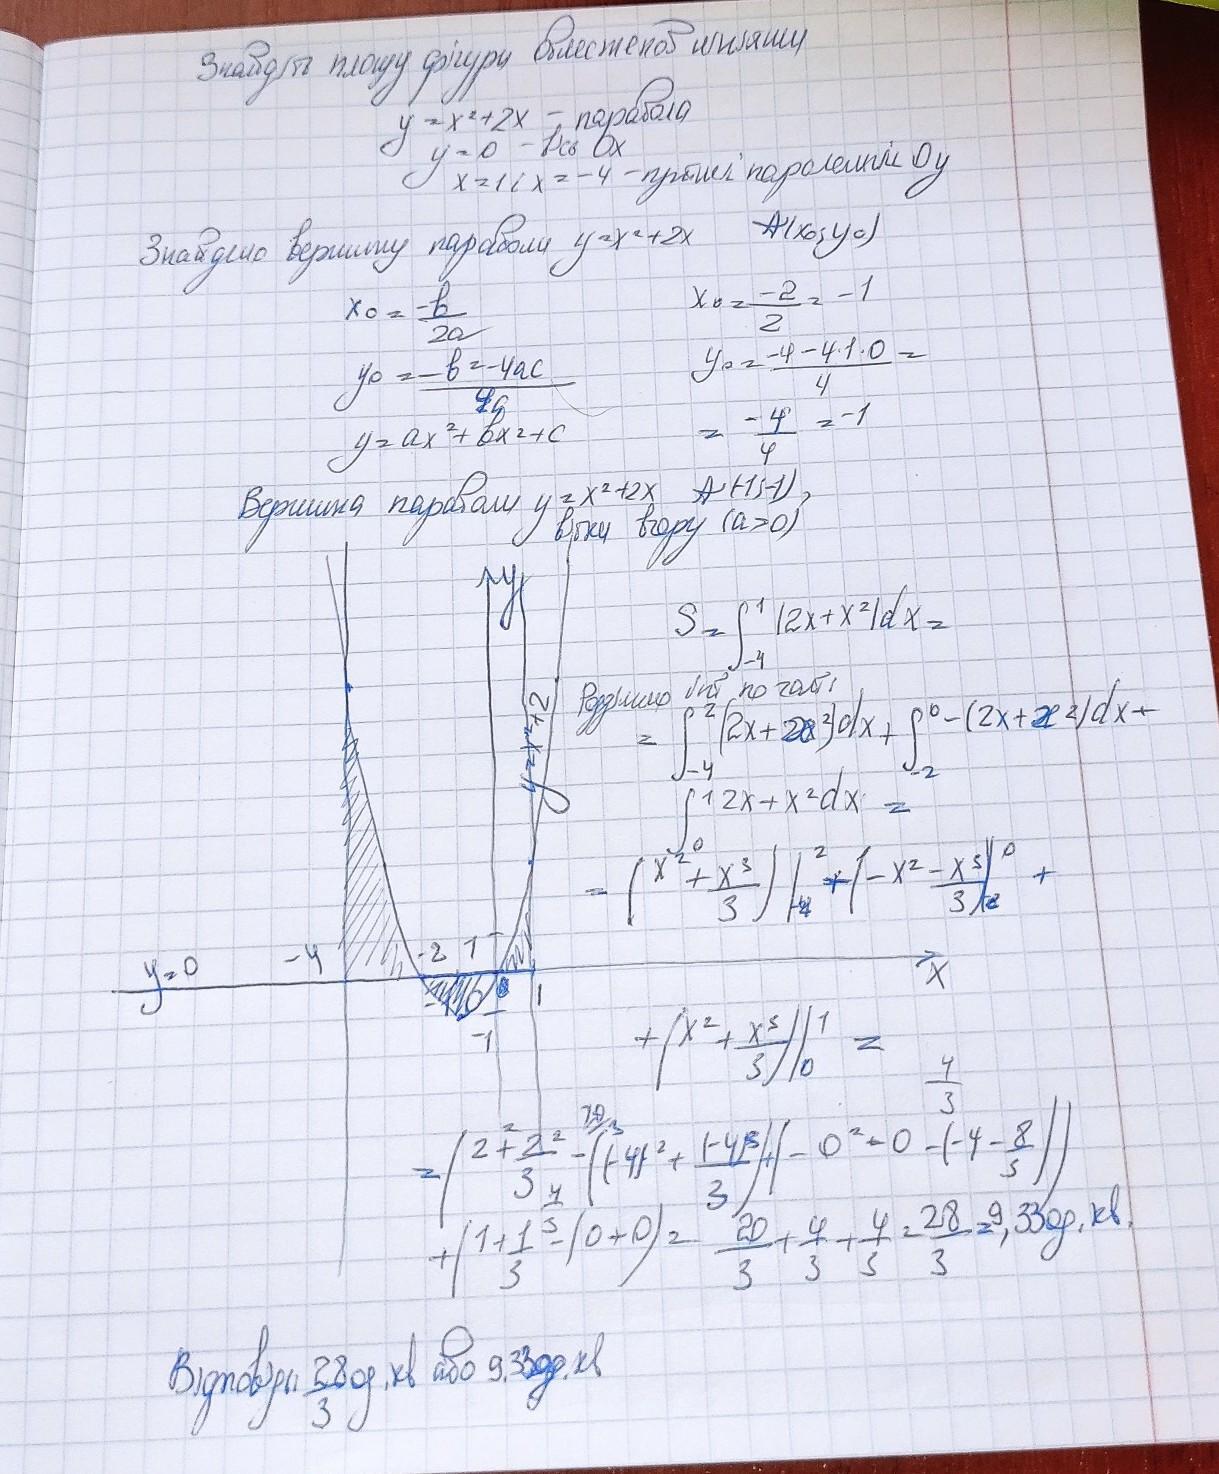 Знайдіть площу фігури обмеженої лініями
y = x² + 2x – парабола
y = 0 – вісь Ox
x = 1 і x = -4 – прямі паралельні Oy
Знайдемо вершину параболи y = x² + 2x A(x₀; y₀)
x₀ = -b/2a x₀ = -2/2 = -1
y₀ = -b²-4ac/4a y₀ = -4-4·1·0/4 =
y = ax² + bx² + c = -4/4 = -1
Вершина параболи y = x² + 2x A(-1;-1),
вітки вгору (a>0)
y
S = ∫₋₄¹ (2x + x²)dx =
Розділимо інт по част:
= ∫₋₄² (2x + x²)dx + ∫₋₂⁰ -(2x + x²)dx +
∫₀¹ 2x + x²dx =
= (x² + x³/3)|₋₄² + (-x² - x³/3)|₋₂⁰ +
y=0 -4 -2 1 0 1 x
-1
+ (x² + x³/3)|₀¹ =
20/3 4/3
= (2² + 2²/3 - ((-4)² + (-4)³/3) + (-0² - 0 - (-4 - 8/3))
4/3
+ (1 + 1/3 - (0+0) = 20/3 + 4/3 + 4/3 = 28/3 = 9,33од.кв.
Відповідь 28/3 од.кв або 9,33од.кв